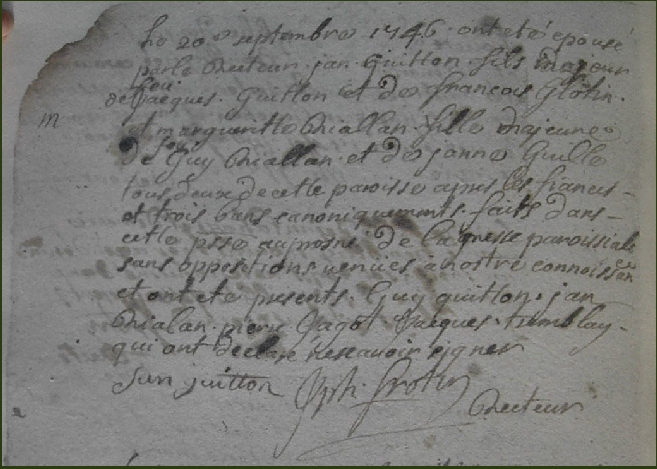 Le 20e septembre 1746 ont eté épousé
par le Recteur jan Guitton fils majeur
de feu jacques Guitton et de francois Glotin
m
et margueritte Thiallan fille majeure
de Guy Thiallan et de janne Guille
tous deux de cette paroisse apres les fiances
et trois bans canoniquements faits dans
cette psse au prosne de la messe paroissiale
sans oppositions venües à nostre connoissan
ce
et ont eté presents Guy guitton jan
Thialan pierre Jagot Jacques tremblay
qui ont declaré ne scavoir signer
jan juitton Jph. Grotin
Recteur